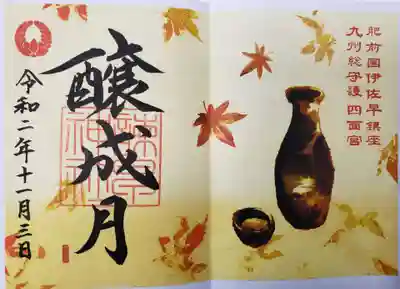 肥前国伊佐早鎮座
九州総守護 四面宮
醸成月
諫早
神社
令和二年十一月三日